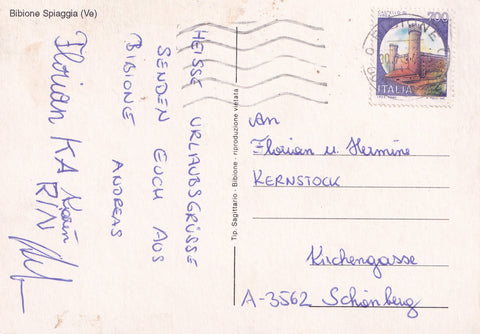 Bibione Spiaggia (Ve)
HEISSE URLAUBSGRÜSSE
SENDEN EUCH AUS
BIBIONE
ANDREAS
Florian KA
RIN
Tip. Sagittario - Bibione - riproduzione vietata
700
ITALIA
An
Florian u. Hermine
KERNSTOCK
Kirchengasse
A-3562 Schönberg